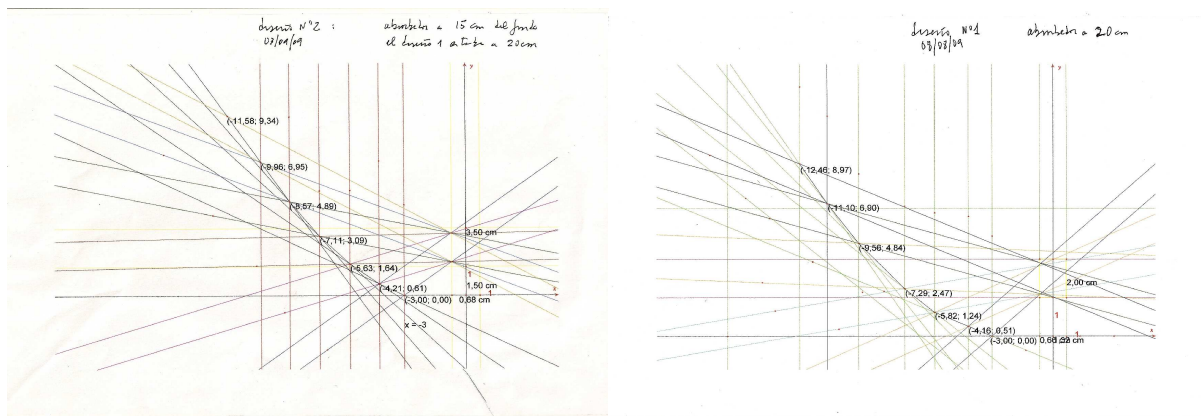 diseño Nº2 : absorbedor a 15 cm del fondo
03/09/09 el diseño 1 estaba a 20cm
y
(-11,58; 9,34)
(-9,96; 6,95)
(-8,57; 4,89)
(-7,11; 3,09)
(-5,63; 1,64)
(-4,21; 0,61)
(-3,00; 0,00)
x = -3
3,50 cm
1
1,50 cm
1
0,68 cm
x
diseño Nº1 absorbedor a 20 cm
08/08/09
y
(-12,46; 8,97)
(-11,10; 6,90)
(-9,56; 4,84)
(-7,29; 2,47)
(-5,82; 1,24)
(-4,16; 0,51)
(-3,00; 0,00)
2,00 cm
1
1
x